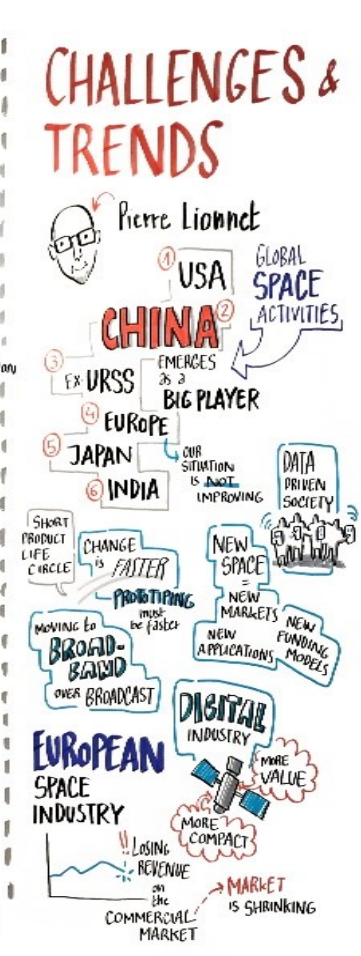 CHALLENGES &
TRENDS
Pierre Lionnet
GLOBAL
SPACE
ACTIVITIES
1
USA
CHINA 2
EMERGES
as a
BIG PLAYER
3
Ex-URSS
4
EUROPE
OUR
SITUATION
IS NOT
IMPROVING
5
JAPAN
6 INDIA
DATA
DRIVEN
SOCIETY
SHORT
PRODUCT
LIFE
CIRCLE
CHANGE
is FASTER
PROTOTIPING
must
be faster
NEW
SPACE
=
NEW
MARKETS
NEW
APPLICATIONS
NEW
FUNDING
MODELS
MOVING to
BROAD-
BAND
OVER BROADCAST
DIGITAL
INDUSTRY
MORE
VALUE
MORE
COMPACT
EUROPEAN
SPACE
INDUSTRY
!! LOSING
REVENUE
on
the
COMMERCIAL
MARKET
MARKET
IS SHRINKING